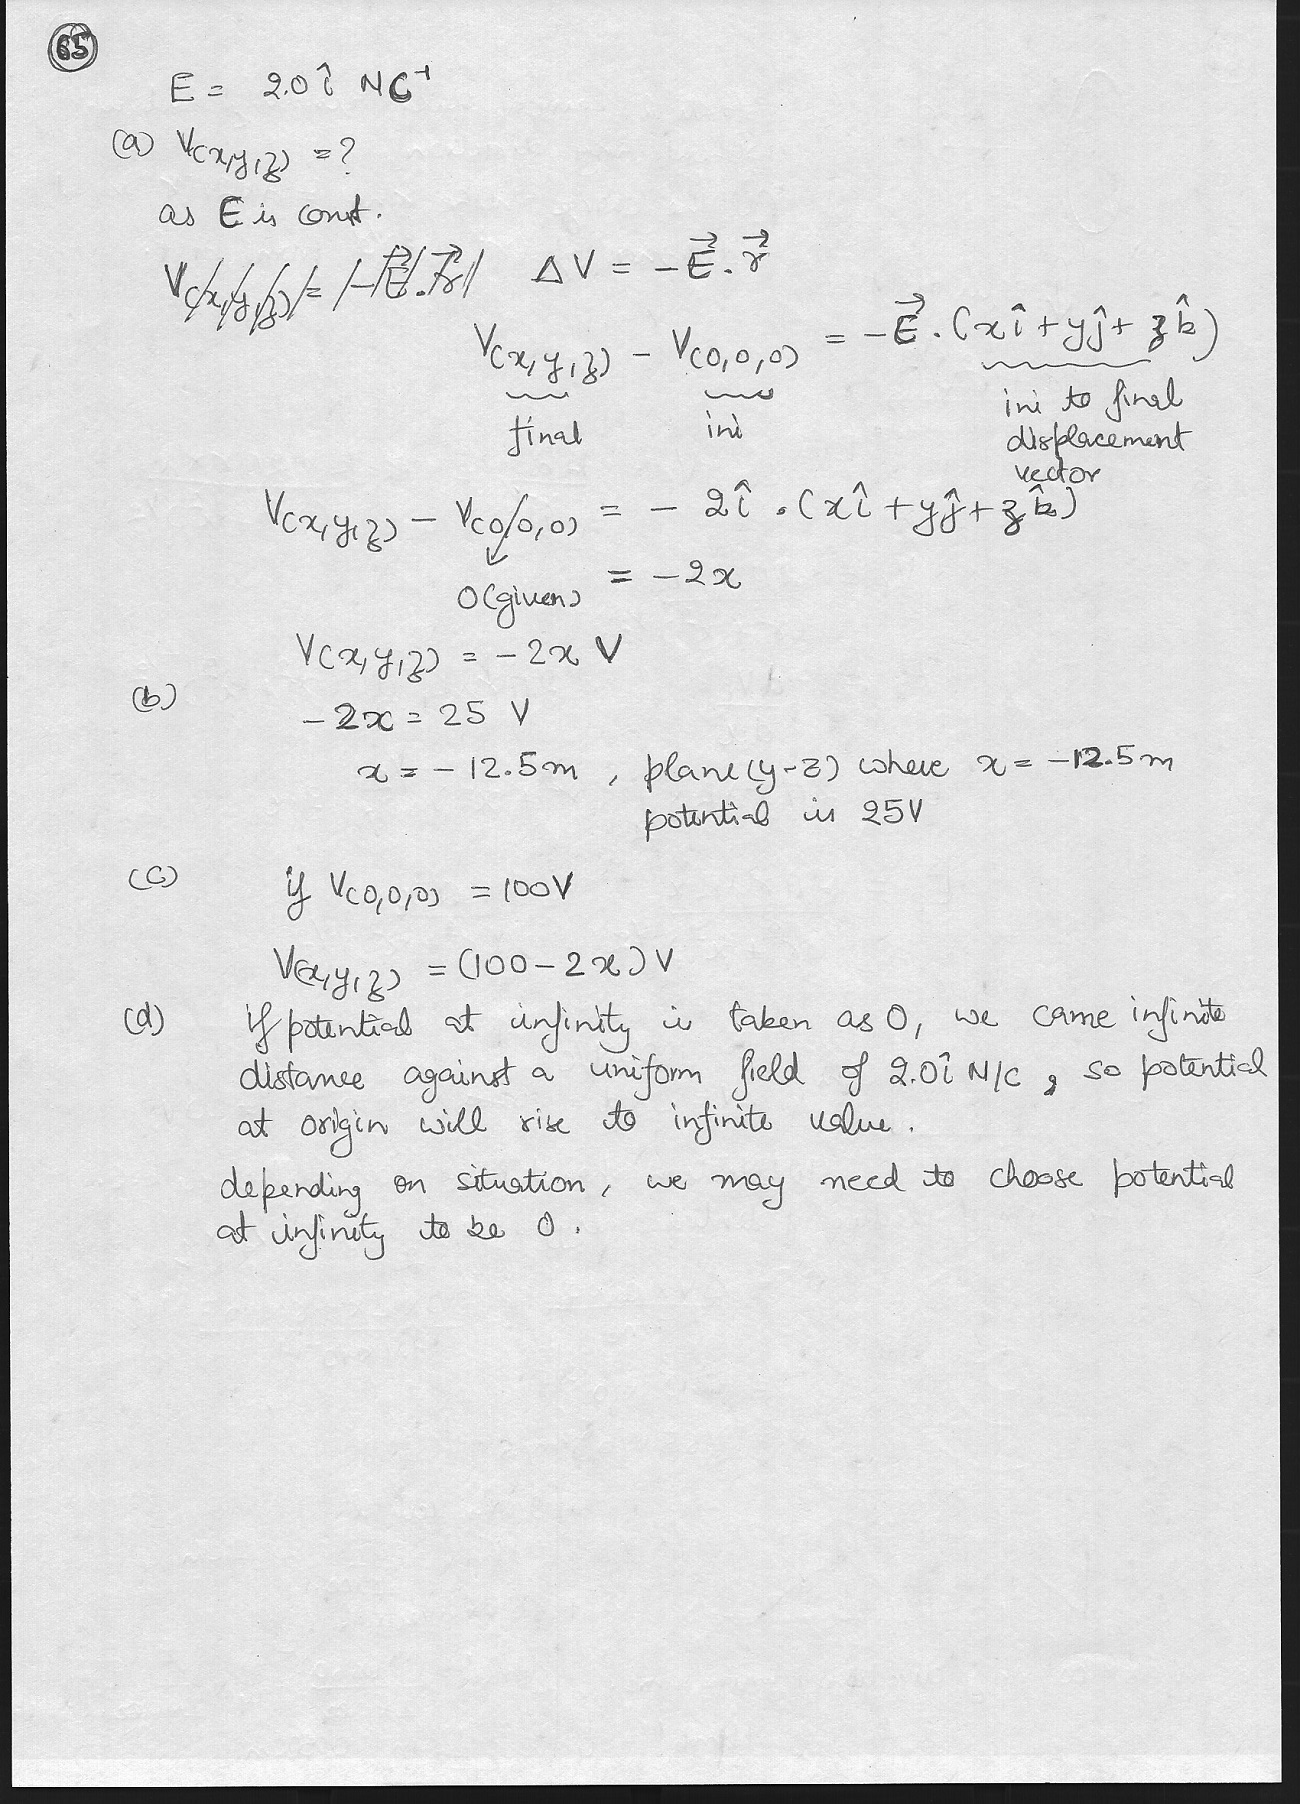 65
E = 2.0 î NC⁻¹
(a) V(x,y,z) = ?
as E is const.
V(x,y,z) = -E⃗.r⃗ ΔV = -E⃗.r⃗
V(x,y,z) - V(0,0,0) = -E⃗.(xî+yĵ+zk̂)
final ini ini to final
displacement
vector
V(x,y,z) - V(0,0,0) = - 2î.(xî+yĵ+zk̂)
0(given) = -2x
V(x,y,z) = -2x V
(b)
-2x = 25 V
x = -12.5m , plane(y-z) where x = -12.5m
potential is 25V
(c) if V(0,0,0) = 100V
V(x,y,z) = (100-2x)V
(d) if potential at infinity is taken as 0, we came infinite
distance against a uniform field of 2.0î N/C, so potential
at origin will rise to infinite value.
depending on situation, we may need to choose potential
at infinity to be 0.